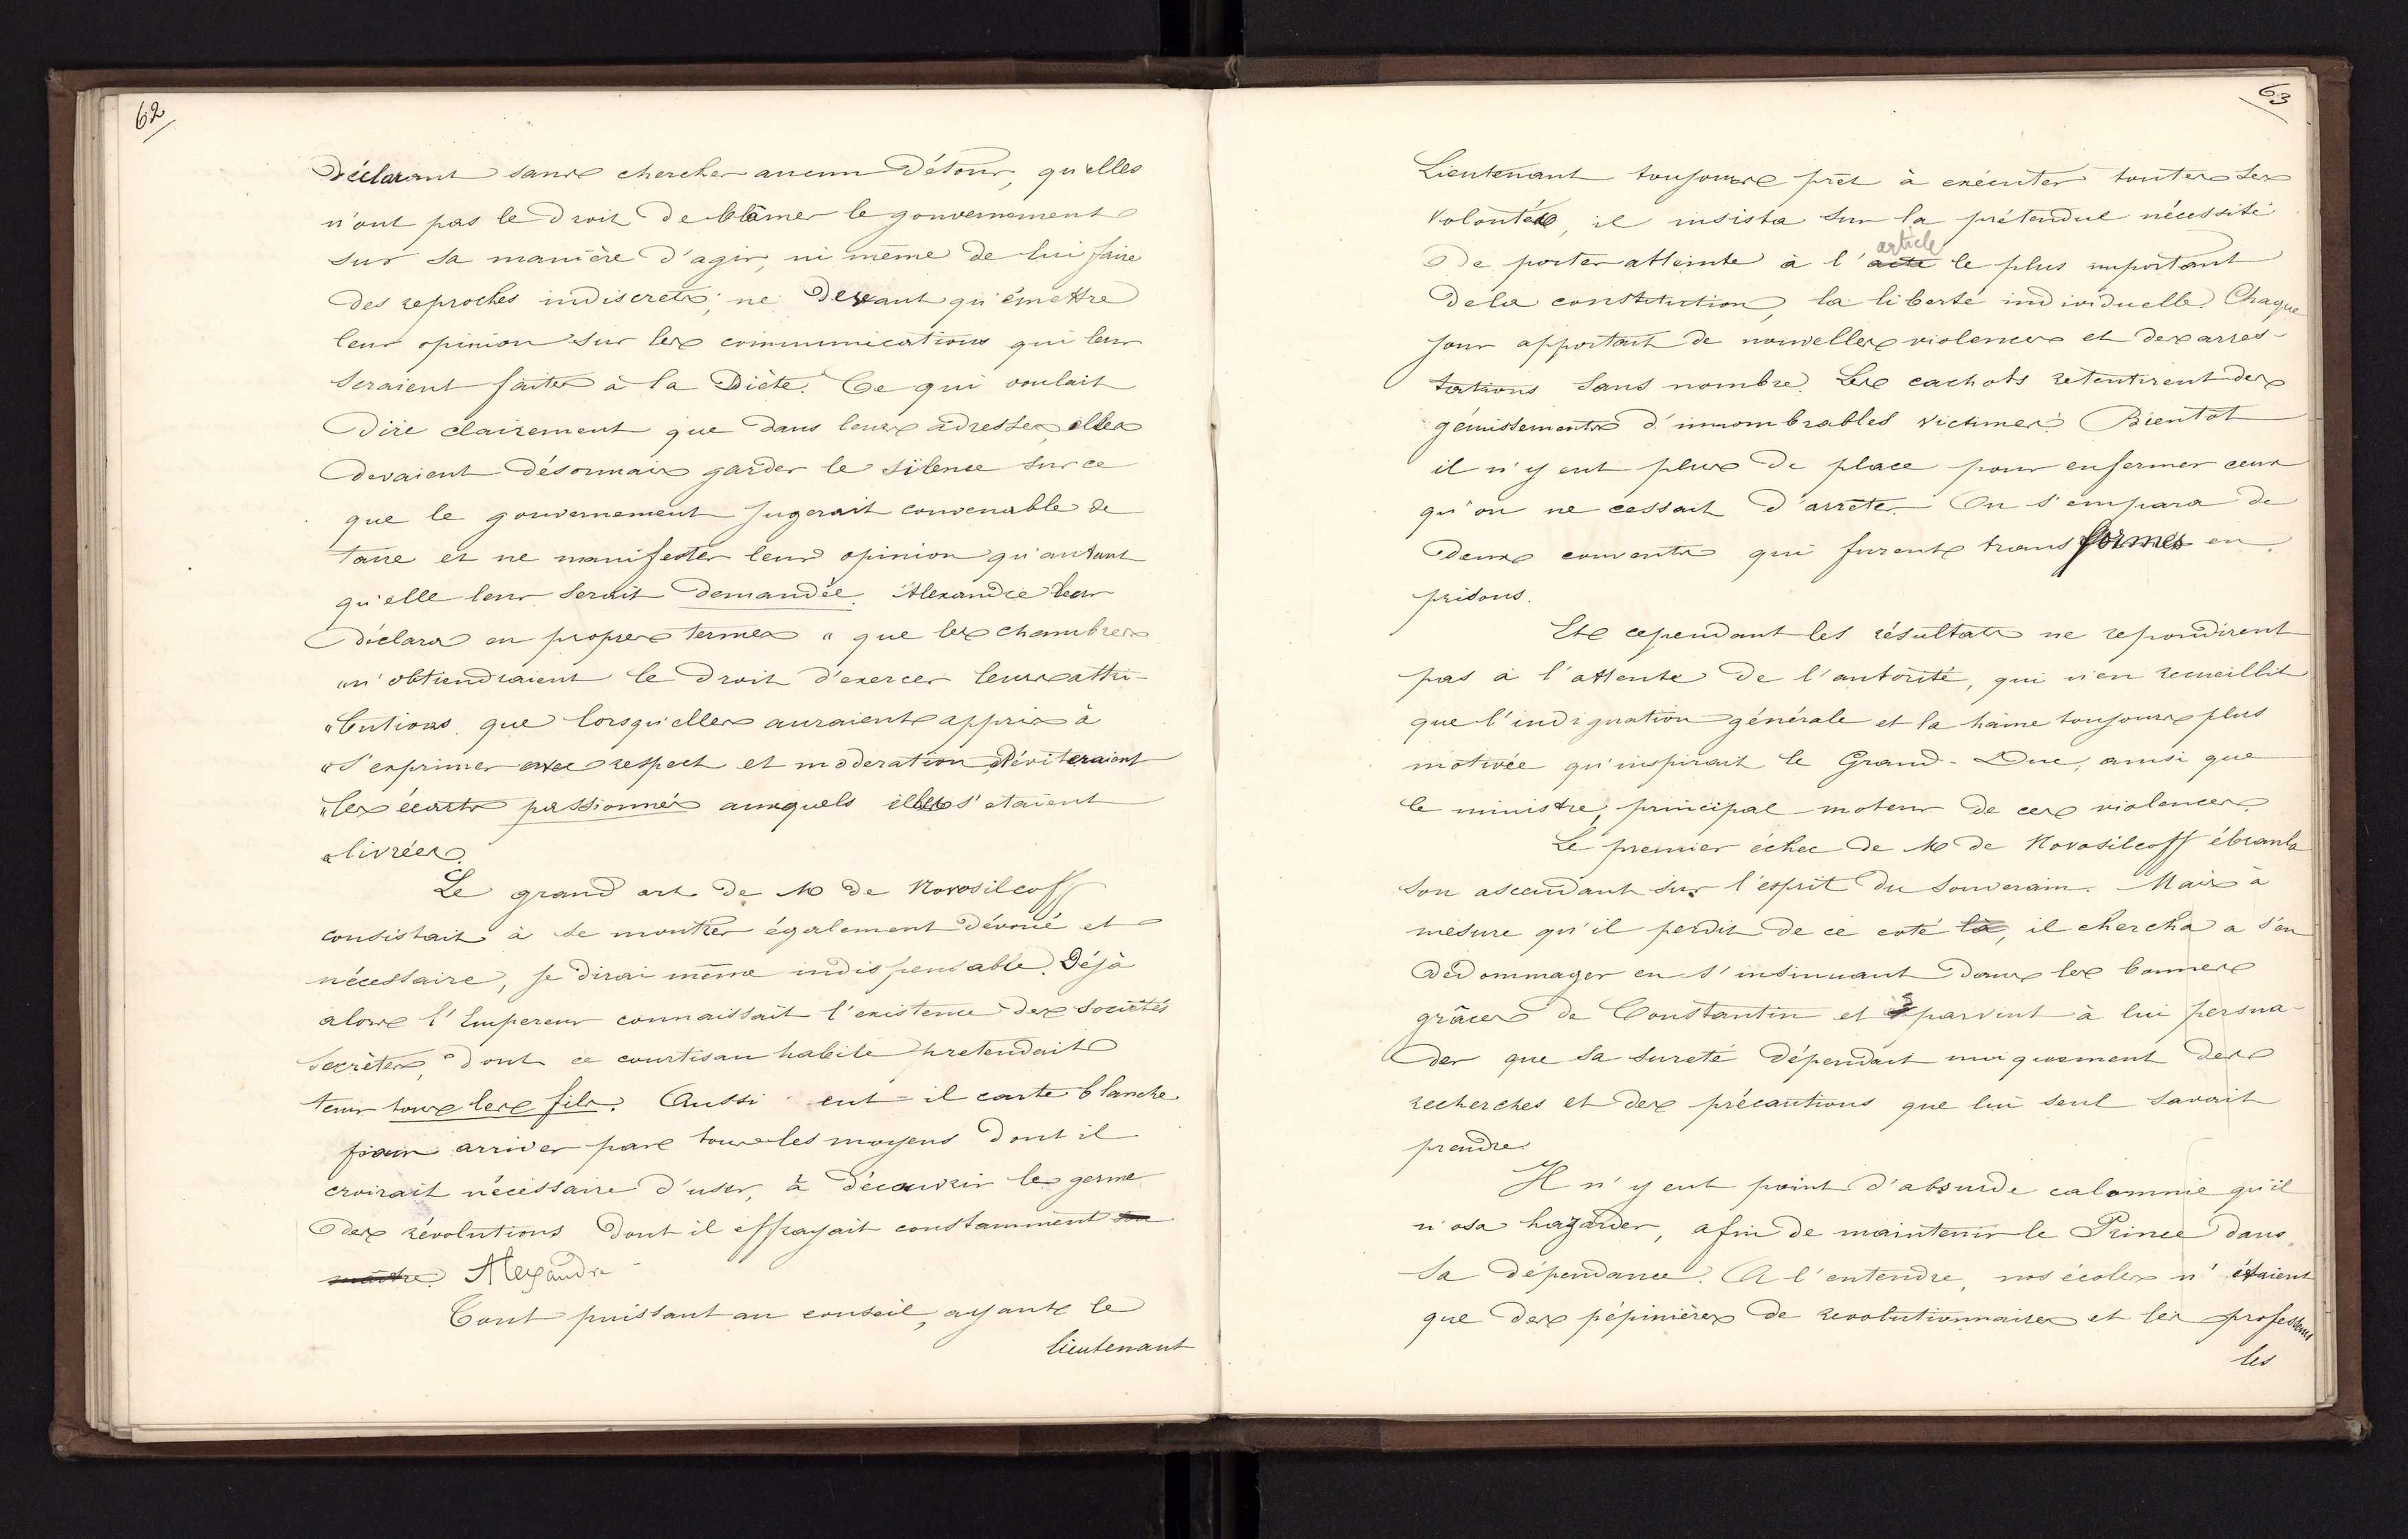 62
déclarant sans chercher aucun détour, qu'elles
n'ont pas le droit de blâmer le gouvernement
sur sa manière d'agir, ni même de lui faire
des reproches indiscrets; ne devant qu'émettre
leur opinion sur les communications qui leur
seraient faites à la Diète. Ce qui voulait
dire clairement que dans leurs adresses, elles
devaient désormais garder le silence sur ce
que le gouvernement jugerait convenable de
taire et ne manifester leur opinion qu'autant
qu'elle leur serait demandée. Alexandre leur
déclara en propres termes " que les chambres
" n'obtiendraient le droit d'exercer leurs attri-
" butions, que lorsqu'elles auraient appris à
" s'exprimer avec respect et moderation, éviteraient
" les écarts passionnés auxquels elles s'étaient
" livrées.
Le grand art de M de Novosilcoff
consistait à se montrer également dévoué et
nécessaire, je dirai même indispensable. Déjà
alors l'Empereur connaissait l'existence des sociétés
secrètes, dont ce courtisan habile pretendait
tenir tous les fils. Aussi eut-il carte blanche
pour arriver par tous les moyens dont il
croirait nécessaire d'user, à découvrir le germe
des révolutions dont il effrayait constamment son
maître. Alexandre
Tout puissant au conseil, ayant le
lieutenant
63
Lieutenant toujours prêt à exécuter toutes ses
volontés, il insista sur la prétendue nécessité
article
de porter atteinte à l'acte le plus important
de la constitution, la liberté individuelle. Chaque
jour apportait de nouvelles violences et des arres-
tations sans nombre. Les cachots retentirent des
gémissements d'innombrables victimes. Bientot
il n'y eut plus de place pour enfermer ceux
qu'on ne cessait d'arrêter. On s'empara de
deux couvents qui furent transformés en
prisons.
Et cependant les résultats ne repondirent
pas à l'attente de l'autorité, qui n'en recueillit
que l'indignation générale et la haine toujours plus
motivée qu'inspirait le Grand-Duc, ainsi que
le ministre, principal moteur de ces violences.
Le premier échec de M de Novosilcoff ébranla
son ascendant sur l'esprit du Souverain. Mais à
mesure qu'il perdit de ce coté là, il chercha a s'en
dédommager en s'insinuant dans les bonnes
grâces de Constantin et parvint à lui persua-
der que sa sureté dépendait uniquement des
recherches et des précautions que lui seul savait
prendre.
Il n'y eut point d'absurde calomnie qu'il
n'osa hazarder, afin de maintenir le Prince dans
sa dépendance. A l'entendre, nos écoles n'étaient
que des pépinières de revolutionnaires et les professeurs
les